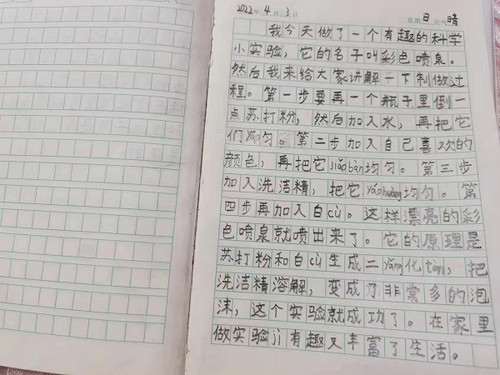 2022年4月3日 星期日 天气晴
我今天做了一个有趣的科学
小实验，它的名子叫彩色喷泉。
然后我来给大家讲解一下制做过
程。第一步要再一个瓶子里倒一
点苏打粉，然后加入水，再把它
们yáo匀。第二步加入自己喜欢的
颜色，再把它jiǎobàn均匀。第三步
加入洗洁精，把它yáohuàng均匀。第
四步再加入白cù。这样漂亮的彩
色喷泉就喷出来了。它的原理是
苏打粉和白cù生成二yǎng化tàn，把
洗洁精溶解，变成了非常多的泡
沫，这个实验就成功了。在家里
做实验jì有趣又丰富了生活。